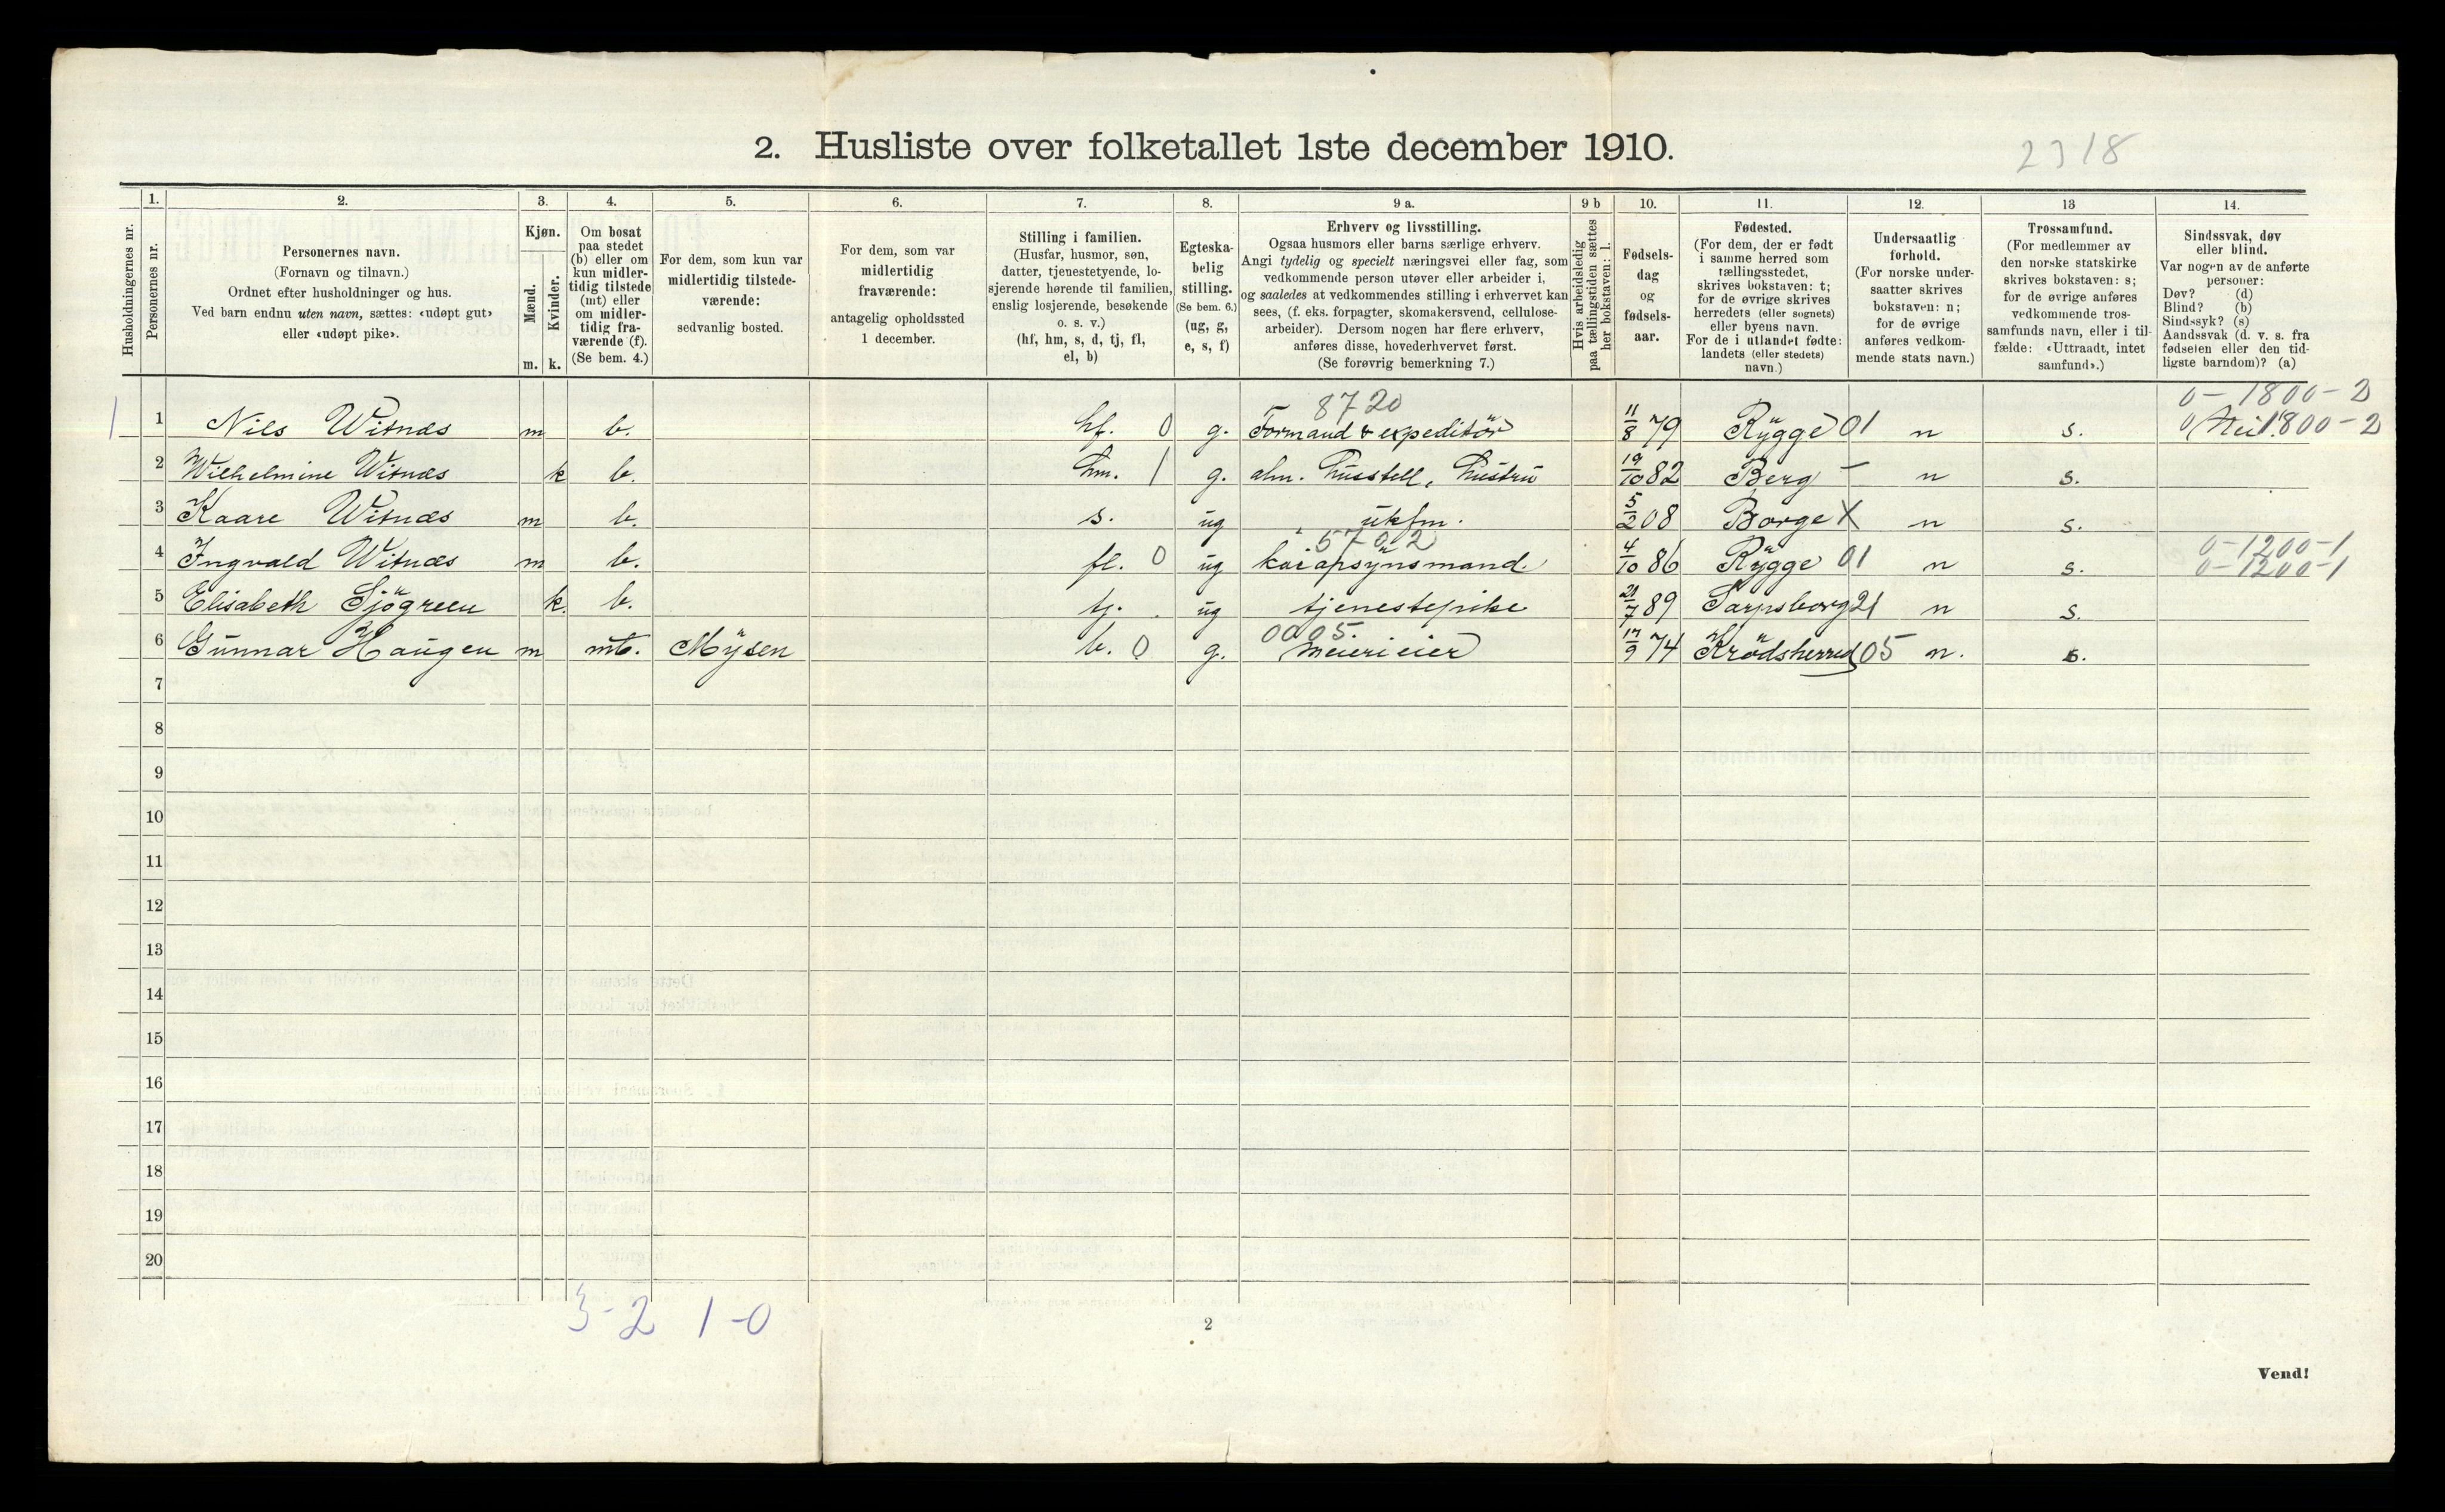 2. Husliste over folketallet 1ste december 1910.
2318
Husholdningernes nr.
1.
Personernes nr.
2.
Personernes navn.
(Fornavn og tilnavn.)
Ordnet efter husholdninger og hus.
Ved barn endnu uten navn, sættes: «udøpt gut»
eller «udøpt pike».
3.
Kjøn.
Mænd.
Kvinder.
m. k.
4.
Om bosat
paa stedet
(b) eller om
kun midler-
tidig tilstede
(mt) eller
om midler-
tidig fra-
værende (f).
(Se bem. 4.)
5.
For dem, som kun var
midlertidig tilstede-
værende:
sedvanlig bosted.
6.
For dem, som var
midlertidig
fraværende:
antagelig opholdssted
1 december.
7.
Stilling i familien.
(Husfar, husmor, søn,
datter, tjenestetyende, lo-
sjerende hørende til familien,
enslig losjerende, besøkende
o. s. v.)
(hf, hm, s, d, tj, fl,
el, b)
8.
Egteska-
belig
stilling.
(Se bem. 6.)
(ug, g,
e, s, f)
9 a.
Erhverv og livsstilling.
Ogsaa husmors eller barns særlige erhverv.
Angi tydelig og specielt næringsvei eller fag, som
vedkommende person utøver eller arbeider i,
og saaledes at vedkommendes stilling i erhvervet kan
sees, (f. eks. forpagter, skomakersvend, cellulose-
arbeider). Dersom nogen har flere erhverv,
anføres disse, hovederhvervet først.
(Se forøvrig bemerkning 7.)
9 b
Hvis arbeidsledig
paa tællingstiden sættes
her bokstaven: l.
10.
Fødsels-
dag
og
fødsels-
aar.
11.
Fødested.
(For dem, der er født
i samme herred som
tællingsstedet,
skrives bokstaven: t;
for de øvrige skrives
herredets (eller sognets)
eller byens navn.
For de i utlandet fødte:
landets (eller stedets)
navn.)
12.
Undersaatlig
forhold.
(For norske under-
saatter skrives
bokstaven: n;
for de øvrige
anføres vedkom-
mende stats navn.)
13
Trossamfund.
(For medlemmer av
den norske statskirke
skrives bokstaven: s;
for de øvrige anføres
vedkommende tros-
samfunds navn, eller i til-
fælde: «Uttraadt, intet
samfund».)
14.
Sindssvak, døv
eller blind.
Var nogen av de anførte
personer:
Døv? (d)
Blind? (b)
Sindssyk? (s)
Aandssvak (d. v. s. fra
fødselen eller den tid-
ligste barndom)? (a)
8720 0-1800-2
1 1 Nils Witnæs m b. hf. 0 g. Formand & expeditör 11/8 79 Rygge 01 n s. 0 1800-2
2 Wilhelmine Witnæs k b. hm. 1 g. alm. husstell, hustru 19/10 82 Berg - n s.
3 Kaare Witnæs m b. s. ug ukfm. 5/2 08 Borge X n s.
5702 0-1200-1
4 Ingvald Witnæs m b. fl. 0 ug kaiopsynsmand. 4/10 86 Rygge 01 n s. 0-1200-1
5 Elisabeth Sjögreen k. b. tj. ug tjenestepike 21/7 89 Sarpsborg 21 n s.
0005.
6 Gunnar Haugen m mt. Mysen b. 0 g. meierieier 17/9 74 Krödsherred 05 n. s.
7
8
9
10
11
12
13
14
15
16
17
18
19
20
3-2 1-0
2
Vend!